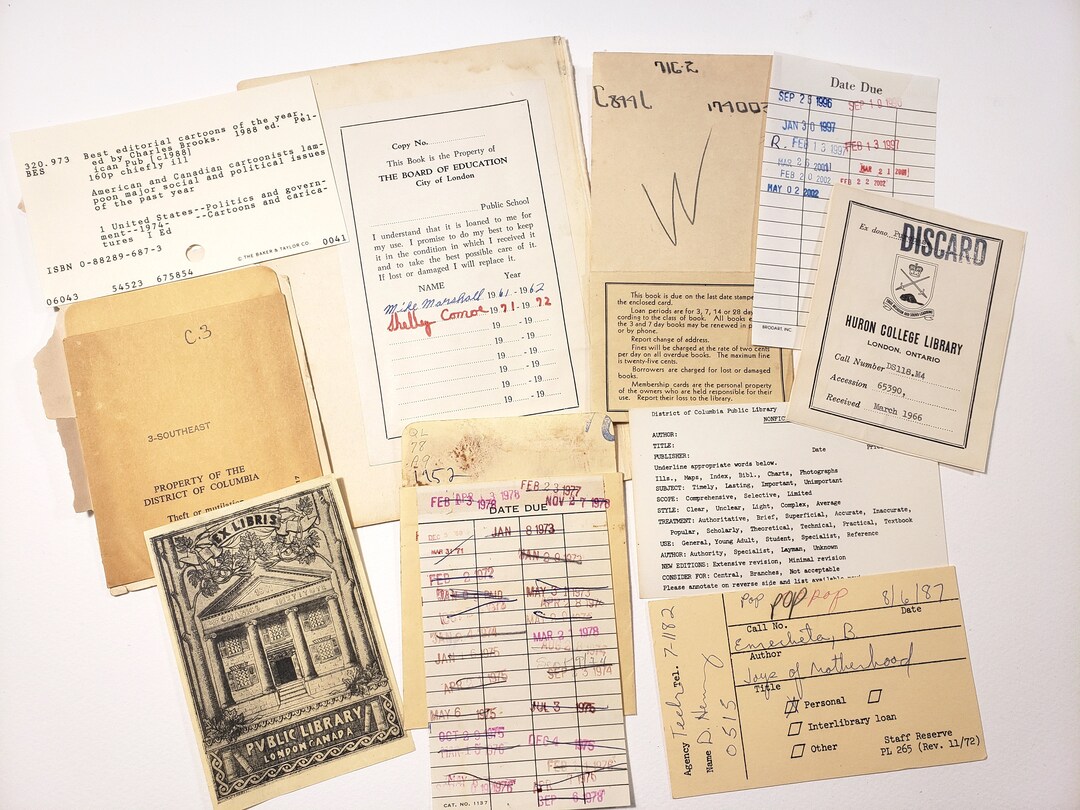 320.973 Best editorial cartoons of the year,
BES ed by Charles Brooks. 1988 ed. Pel-
ican Pub [c1988]
160p chiefly ill
American and Canadian cartoonists lam-
poon major social and political issues
of the past year
1 United States--Politics and govern-
ment--1974- --Cartoons and carica-
tures I Ed
ISBN 0-88289-687-3
© THE BAKER & TAYLOR CO. 0041
06043 54523 675854
Copy No.
This Book is the Property of
THE BOARD OF EDUCATION
City of London
Public School
I understand that it is loaned to me for
my use. I promise to do my best to keep
it in the condition in which I received it
and to take the best possible care of it.
If lost or damaged I will replace it.
NAME Year
Mike Marshall 1961-1962
Shelly Comoe 1971-1972
19 - 19
19 - 19
19 - 19
19 - 19
19 - 19
19 - 19
W
This book is due on the last date stampe
the enclosed card.
Loan periods are for 3, 7, 14 or 28 da
cording to the class of book. All books e
the 3 and 7 day books may be renewed in p
or by phone.
Report change of address.
Fines will be charged at the rate of two cents
per day on all overdue books. The maximum fine
is twenty-five cents.
Borrowers are charged for lost or damaged
books.
Membership cards are the personal property
of the owners who are held responsible for their
use. Report their loss to the library.
Date Due
SEP 26 1996 SEP 19 1996
JAN 30 1997
R. FEB 13 1997 FEB 13 1997
MAR 26 2001 MAR 21 2001
FEB 20 2002 FEB 22 2002
MAY 02 2002
BRODART, INC.
Ex dono
DISCARD
HURON COLLEGE LIBRARY
LONDON, ONTARIO
Call Number DS118.M4
Accession 65390,
Received March 1966
C.3
3-SOUTHEAST
PROPERTY OF THE
DISTRICT OF COLUMBIA
Theft or mutilation
EX LIBRIS
PVBLIC LIBRARY
LONDON CANADA
QL
1952
FEB 23 1977
FEB 3 1978 APR 13 1978 NOV 27 1978
DATE DUE
JAN 8 1973
MAR 31 71
FEB 2 1972
MAR 3 1978
MAY 6 1975 JUL 3 1975
DEC 4 1975
SEP 6 1978
CAT. NO. 1137
District of Columbia Public Library
NONFIC
AUTHOR:
TITLE:
PUBLISHER: Date
Underline appropriate words below.
Ills., Maps, Index, Bibl., Charts, Photographs
SUBJECT: Timely, Lasting, Important, Unimportant
SCOPE: Comprehensive, Selective, Limited
STYLE: Clear, Unclear, Light, Complex, Average
TREATMENT: Authoritative, Brief, Superficial, Accurate, Inaccurate,
Popular, Scholarly, Theoretical, Technical, Practical, Textbook
USE: General, Young Adult, Student, Specialist, Reference
AUTHOR: Authority, Specialist, Layman, Unknown
NEW EDITIONS: Extensive revision, Minimal revision
CONSIDER FOR: Central, Branches, Not acceptable
Please annotate on reverse side and list available
Pop POP POP 8/6/87
Call No. Date
Emecheta, B.
Author
Joys of Motherhood
Title
Personal
Interlibrary loan
Other
Staff Reserve
PL 265 (Rev. 11/72)
Agency Tech Tel. 7-1182
Name D. Henry
0515